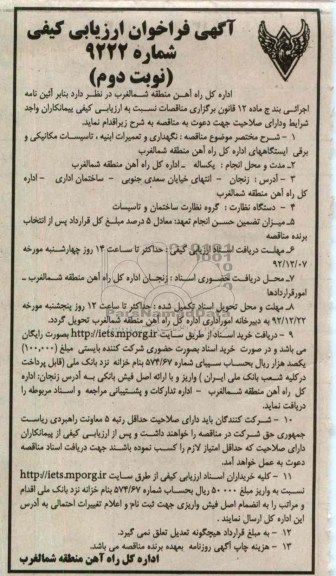 آگهی فراخوان ارزیابی کیفی
شماره ۹۲۲۲
(نوبت دوم)
اداره کل راه آهن منطقه شمالغرب در نظر دارد بنابر آئین نامه
اجرائی بند ج ماده ۱۲ قانون برگزاری مناقصات نسبت به ارزیابی کیفی پیمانکاران واجد
شرایط ودارای صلاحیت جهت دعوت به مناقصه به شرح زیراقدام نماید.
۱ - شرح مختصر موضوع مناقصه : نگهداری و تعمیرات ابنیه ، تاسیسات مکانیکی و
برقی ایستگاههای اداره کل راه آهن منطقه شمالغرب
۲ـ مدت و محل انجام : یکساله - اداره کل راه آهن منطقه شمالغرب
۳ - آدرس : زنجان - انتهای خیابان سعدی جنوبی - ساختمان اداری - اداره
کل راه آهن منطقه شمالغرب
۴ - دستگاه نظارت : گروه نظارت ساختمان و تاسیسات
۵ـ میزان تضمین حسن انجام تعهد: معادل ۵ درصد مبلغ کل قرارداد پس از انتخاب
برنده مناقصه
۶ـ مهلت دریافت اسناد ارزیابی کیفی : حداکثر تا ساعت ۱۴ روز چهارشنبه مورخه
۹۲/۱۲/۰۷
۷ـ محل دریافت حضوری اسناد : زنجان اداره کل راه آهن منطقه شمالغرب -
امورقراردادها
۸ـ مهلت و محل تحویل اسناد تکمیل شده : حداکثر تا ساعت ۱۲ روز پنجشنبه مورخه
۹۲/۱۲/۲۲ به دبیرخانه اموراداری اداره کل راه آهن منطقه شمالغرب تحویل گردد.
۹ - دریافت خرید اسناد از طریق سایت http://iets.mporg.ir بصورت رایگان
می باشد و در صورت خرید اسناد بصورت حضوری شرکت کننده بایستی مبلغ (۱۰۰,۰۰۰)
یکصد هزار ریال بحساب سیبای شماره ۵۷۴/۶۷ بنام خزانه نزد بانک ملی (قابل پرداخت
درکلیه شعب بانک ملی ایران ) واریز و با ارائه اصل فیش بانکی به آدرس زنجان: اداره
کل راه آهن منطقه شمالغرب - اداره تدارکات و پشتیبانی مراجعه و اسناد مربوطه را
دریافت نماید.
۱۰ - شرکت کنندگان باید دارای صلاحیت حداقل رتبه ۵ معاونت راهبردی ریاست
جمهوری حق شرکت در مناقصه را خواهند داشت و پس از ارزیابی کیفی از پیمانکاران
دارای صلاحیت که حداقل امتیاز لازم را کسب نموده باشند جهت دریافت اسناد مناقصه
دعوت به عمل خواهد آمد.
۱۱ - کلیه خریداران اسناد ارزیابی کیفی از طرق سایت http://iets.mporg.ir
نسبت به واریز مبلغ ۵۰۰۰۰ ریال بحساب شماره ۵۷۴/۶۷ بنام خزانه نزد بانک ملی اقدام
و مراتب را به انضمام اصل فیش واریزی جهت ثبت نام و اعلام تغییرات احتمالی به آدرس
این اداره کل ارسال نمایند .
۱۲ - به مبلغ قرارداد هیچگونه تعدیل تعلق نمی گیرد.
۱۳ - هزینه چاپ آگهی روزنامه بعهده برنده مناقصه می باشد.
اداره کل راه آهن منطقه شمالغرب